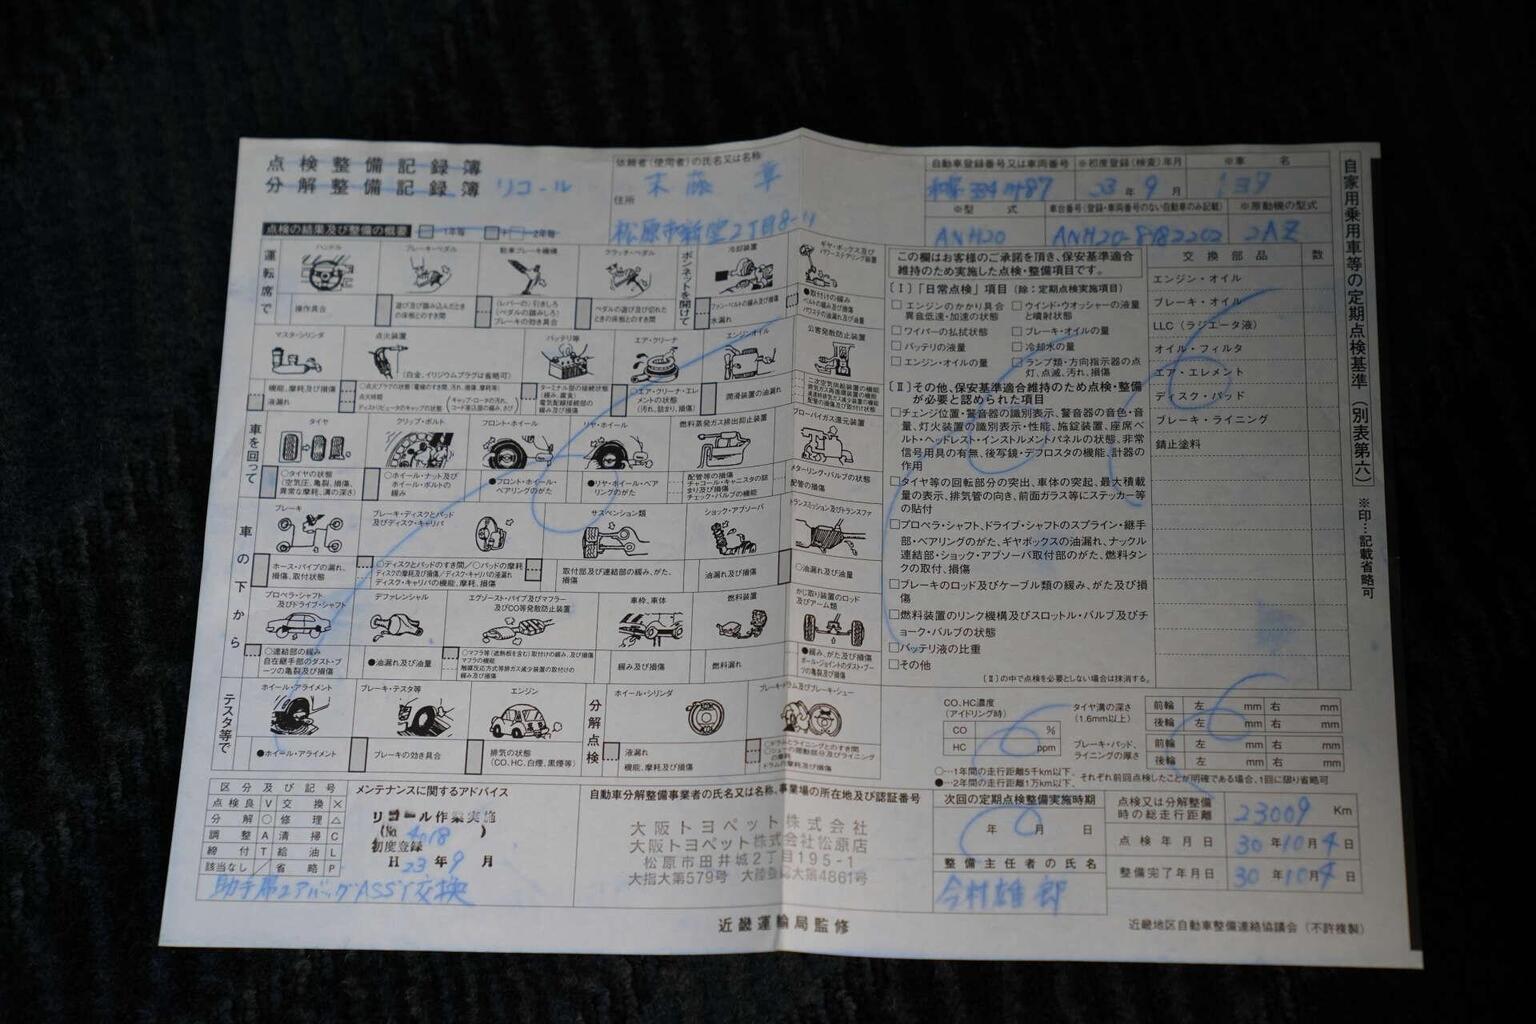 点検整備記録簿
分解整備記録簿 リコール
依頼者(使用者)の氏名又は名称
末藤 章
住所
松原市新堂2丁目8-11
自動車登録番号又は車両番号
※初度登録(検査)年月
23年9月
※車名
※型式
ANH20
車台番号(登録・車両番号のない自動車のみ記載)
ANH20-8182202
※原動機の型式
2AZ
自家用乗用車等の定期点検基準(別表第六) ※印…記載省略可
点検の結果及び整備の概要 1年毎 2年毎
運転席で
ハンドル
操作具合
ブレーキ・ペダル
遊び及び踏み込んだときの床板とのすき間
駐車ブレーキ機構
(レバーの)引きしろ
(ペダルの踏みしろ)
ブレーキの効き具合
クラッチ・ペダル
ペダルの遊び及び切れたときの床板とのすき間
ボンネットを開けて
冷却装置
ファン・ベルトの緩み及び損傷
水漏れ
ギヤ・ボックス及びパワーステアリング装置
●取付けの緩み
ベルトの緩み及び損傷
パワステの油漏れ及び油量
マスタ・シリンダ
機能、摩耗及び損傷
液漏れ
点火装置
(白金、イリジウムプラグは省略可)
点火時期
バッテリ等
ターミナル部の接続状態
(緩み、腐食)
電気配線接続部の緩み及び損傷
エア・クリーナ
○エア・クリーナ・エレメントの状態
(汚れ、詰まり、損傷)
エンジンオイル
潤滑装置の油漏れ
公害発散防止装置
車を回って
タイヤ
○タイヤの状態
(空気圧、亀裂、損傷、異常な摩耗、溝の深さ)
クリップ・ボルト
○ホイール・ナット及びホイール・ボルトの緩み
フロント・ホイール
●フロント・ホイール・ベアリングのがた
リヤ・ホイール
●リヤ・ホイール・ベアリングのがた
燃料蒸発ガス排出抑止装置
配管等の損傷
チャコール・キャニスタの詰まり及び損傷
チェック・バルブの機能
ブローバイガス還元装置
メターリング・バルブの状態
配管の損傷
車の下から
ブレーキ
ホース・パイプの漏れ、損傷、取付状態
ブレーキ・ディスクとパッド及びディスク・キャリパ
○ディスクとパッドのすき間/○パッドの摩耗
ディスクの摩耗及び損傷/ディスク・キャリパの液漏れ
ディスク・キャリパの機能、摩耗、損傷
サスペンション類
取付部及び連結部の緩み、がた、損傷
ショック・アブソーバ
油漏れ及び損傷
トランスミッション及びトランスファ
○油漏れ及び油量
プロペラ・シャフト及びドライブ・シャフト
○連結部の緩み
自在継手部のダスト・ブーツの亀裂及び損傷
デファレンシャル
●油漏れ及び油量
エグゾースト・パイプ及びマフラー及びCO等発散防止装置
○マフラ等(遮熱板を含む)取付けの緩み、及び損傷
マフラの機能
触媒反応方式等排ガス減少装置の取付けの緩み及び損傷
車枠、車体
緩み及び損傷
燃料装置
燃料漏れ
かじ取り装置のロッド及びアーム類
●緩み、がた及び損傷
ボール・ジョイントのダスト・ブーツの亀裂及び損傷
テスタ等で
ホイール・アライメント
●ホイール・アライメント
ブレーキ・テスタ等
ブレーキの効き具合
エンジン
排気の状態
(CO、HC、白煙、黒煙等)
分解点検
ホイール・シリンダ
液漏れ
機能、摩耗及び損傷
ブレーキ・ドラム及びブレーキ・シュー
○ドラムとライニングとのすき間
ドラムの摩耗及び損傷
この欄はお客様のご承諾を頂き、保安基準適合維持のため実施した点検・整備項目です。
〔Ⅰ〕「日常点検」項目(除:定期点検実施項目)
□エンジンのかかり具合 異音低速・加速の状態
□ウインド・ウオッシャーの液量と噴射状態
□ワイパーの払拭状態
□ブレーキ・オイルの量
□バッテリの液量
□冷却水の量
□エンジン・オイルの量
□ランプ類・方向指示器の点灯、点滅、汚れ、損傷
〔Ⅱ〕その他、保安基準適合維持のため点検・整備が必要と認められた項目
□チェンジ位置・警音器の識別表示、警音器の音色・音量、灯火装置の識別表示・性能、施錠装置、座席ベルト・ヘッドレスト・インストルメントパネルの状態、非常信号用具の有無、後写鏡・デフロスタの機能、計器の作用
□タイヤ等の回転部分の突出、車体の突起、最大積載量の表示、排気管の向き、前面ガラス等にステッカー等の貼付
□プロペラ・シャフト、ドライブ・シャフトのスプライン・継手部・ベアリングのがた、ギヤボックスの油漏れ、ナックル連結部・ショック・アブソーバ取付部のがた、燃料タンクの取付、損傷
□ブレーキのロッド及びケーブル類の緩み、がた及び損傷
□燃料装置のリンク機構及びスロットル・バルブ及びチョーク・バルブの状態
□バッテリ液の比重
□その他
〔Ⅱ〕の中で点検を必要としない場合は抹消する。
交換部品 数
エンジン・オイル
ブレーキ・オイル
LLC(ラジエータ液)
オイル・フィルタ
エア・エレメント
ディスク・パッド
ブレーキ・ライニング
錆止塗料
CO、HC濃度
(アイドリング時)
CO %
HC ppm
タイヤ溝の深さ
(1.6mm以上)
前輪 左 mm 右 mm
後輪 左 mm 右 mm
ブレーキ・パッド、ライニングの厚さ
前輪 左 mm 右 mm
後輪 左 mm 右 mm
○…1年間の走行距離5千km以下、
●…2年間の走行距離1万km以下、
それぞれ前回点検したことが明確である場合、1回に限り省略可
区分及び記号
点検良 V 交換 ×
分解 ○ 修理 △
調整 A 清掃 C
締付 T 給油 L
該当なし / 省略 P
メンテナンスに関するアドバイス
リコール作業実施
(No. 4018 )
初度登録
H 23年9月
助手席エアバッグASS'Y交換
自動車分解整備事業者の氏名又は名称、事業場の所在地及び認証番号
大阪トヨペット株式会社
大阪トヨペット株式会社松原店
松原市田井城2丁目195-1
大指大第579号
次回の定期点検整備実施時期
年 月 日
整備主任者の氏名
今村雄郎
点検又は分解整備時の総走行距離
23009 Km
点検年月日
30年10月4日
整備完了年月日
30年10月4日
近畿運輸局監修
近畿地区自動車整備連絡協議会(不許複製)